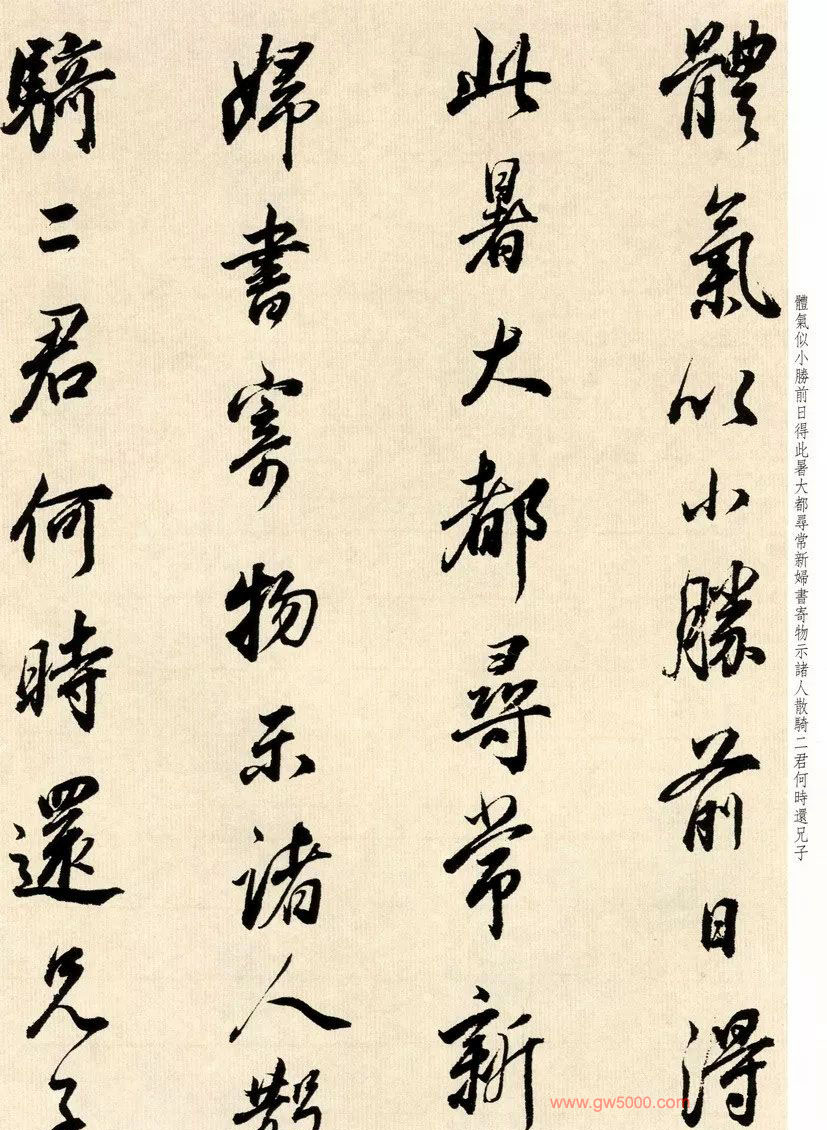 體氣似小勝前日得
此暑大都尋常新
婦書寄物示諸人散
騎二君何時還兄子
體氣似小勝前日得此暑大都尋常新婦書寄物示諸人散騎二君何時還兄子
www.gw5000.com